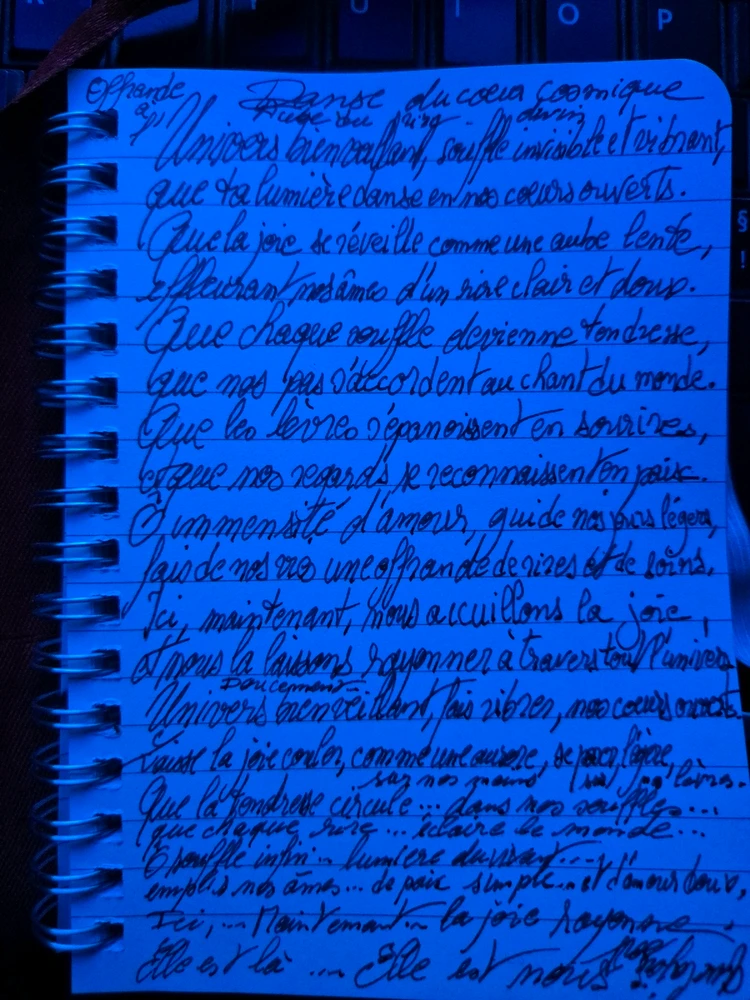 U I O P
Offrande à
Danse du coeur cosmique
divin
Univers bienveillant, souffle invisible et vibrant,
que ta lumière danse en nos coeurs ouverts.
Que la joie se réveille comme une aube lente,
effleurant nos âmes d'un rire clair et doux.
Que chaque souffle devienne tendresse,
que nos pas s'accordent au chant du monde.
Que les lèvres s'épanoissent en sourires,
et que nos regards se reconnaissent en paix.
Ô immensité d'amour, guide nos jours légers,
fais de nos vies une offrande de rires et de soins.
Ici, maintenant, nous accuillons la joie,
et nous la laissons rayonner à travers tout l'univers
Doucement
Univers bienveillant, fais vibrer, nos coeurs ouverts
Laisse la joie couler, comme une aurore, légère,
sur nos mains lèvres.
Que la tendresse circule... dans nos souffles...
que chaque rire... éclaire le monde...
Ô souffle infini... lumière du vivant....
emplis nos âmes... de paix simple... et d'amour doux,
Ici,... Maintenant... la joie rayonne
Elle est là .... Elle est nous